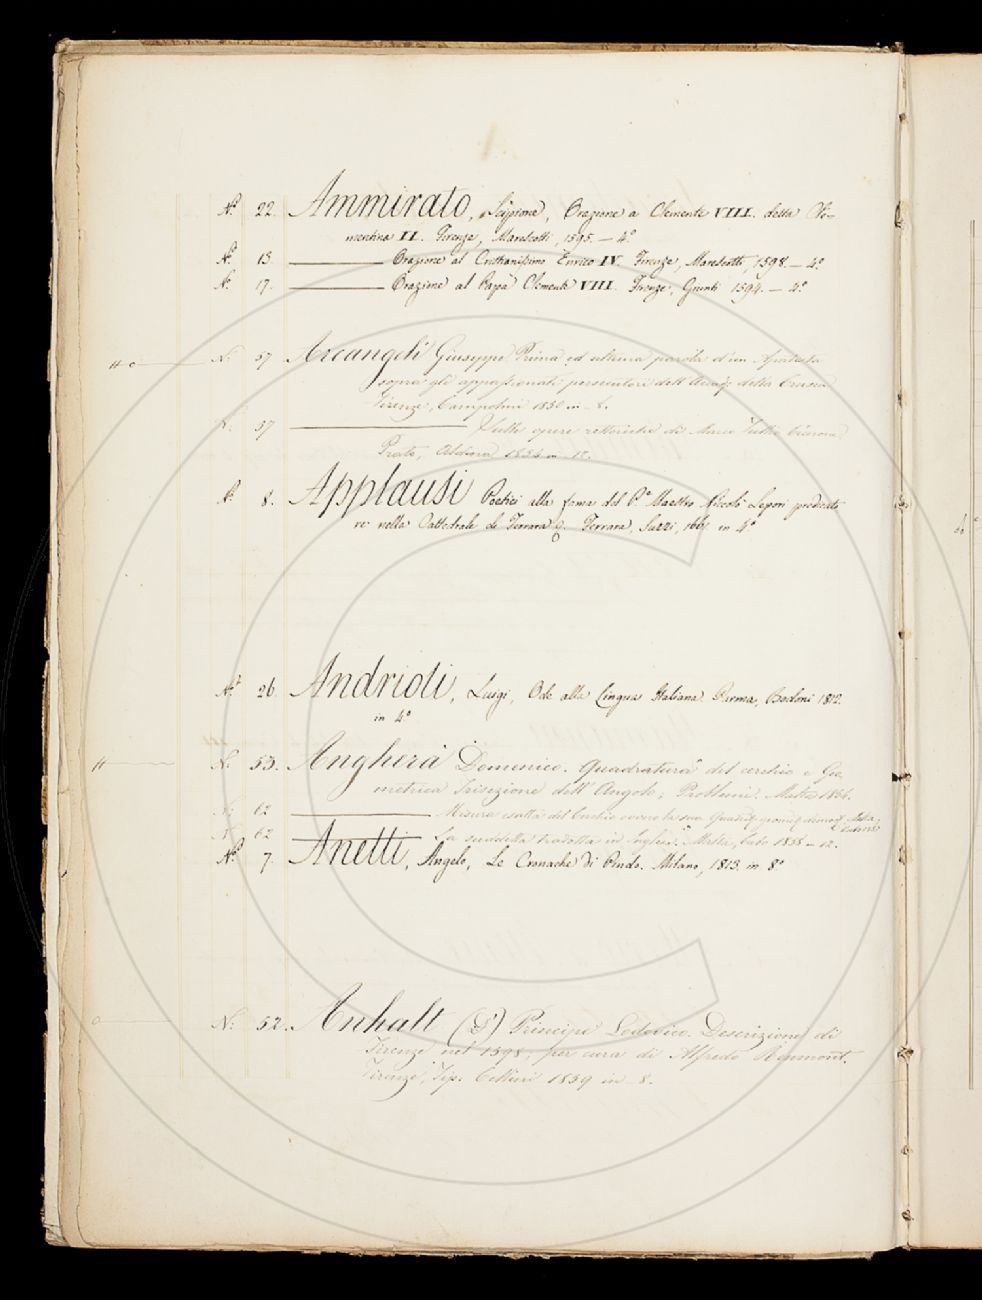 N.º 22. Ammirato, Scipione, Orazione a Clemente VIII. detta Cle-
mentina II. Firenze, Marescotti, 1595. — 4.º
N.º 13. Orazione al Cristianissimo Enrico IV. Firenze, Marescotti, 1598. — 4.º
N.º 17. Orazione al Papa Clemente VIII. Firenze, Giunti 1594. — 4.º
N. 57 Arcangeli Giuseppe Prima ed ultima parola d'un Apatista
sopra gli appassionati persecutori dell'Accad. della Crusca
Firenze, Campolmi 1850 in-8.
N. 57 Sulle opere rettoriche di Marco Tullio Cicerone
Prato, 1854 in-12.
N.º 8. Applausi Poetici alla fama del P.e Maestro Niccolò Lepori predicato
re nella Cattedrale di Ferrara. Ferrara, Suzzi, in 4.º
N.º 26. Andrioli, Luigi, Ode alla Lingua Italiana. Parma, Bodoni 1812.
in 4.º
N. 53. Angherà Domenico. Quadratura del cerchio e Geo
metrica Trisezione dell'Angolo; Problemi. Malta 1854.
N. 62 Misura esatta del Cerchio ovvero la sua Quadr. Malta
N. 62 La suddetta tradotta in Inglese. Malta, 1858 - 12.
N.º 7. Anetti, Angelo, Le Cronache di Pindo. Milano, 1813. in 8.º
N. 52. Anhalt (d') Principe Lodovico. Descrizione di
Firenze nel 1598, per cura di Alfredo Reumont.
Firenze, Tip. Cellini 1859 in-8.